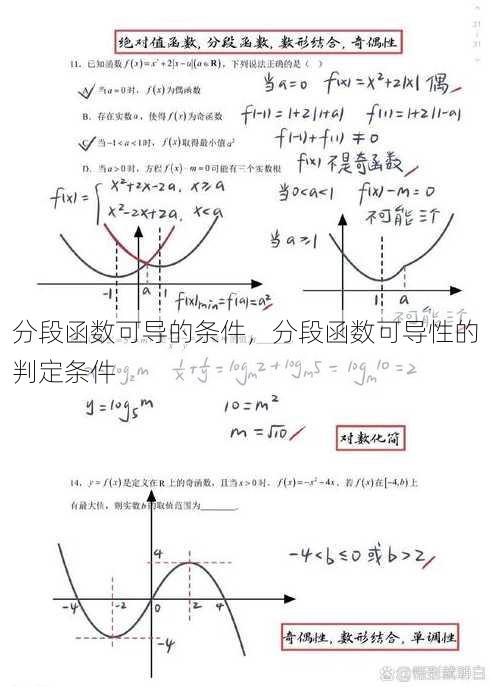 21
31
绝对值函数,分段函数,数形结合,奇偶性
11. 已知函数 f(x)=x²+2|x-a|(a∈R), 下列说法正确的是（ ）
A. 当a=0时, f(x)为偶函数
当a=0 f(x)=x²+2|x| 偶,
B. 存在实数a, 使得f(x)为奇函数
f(-1)=1+2|1+a| f(1)=1+2|1-a|
f(-1)+f(1)≠0
C. 当-1<a<1时, f(x)取得最小值a²
f(x) 不是奇函数
D. 当a>0时, 方程f(x)-m=0可能有三个实数根
f(x)={x²+2x-2a, x≥a
x²-2x+2a, x<a
当0<a<1 f(x)-m=0
不可能三个
当a≥1
-1 a 1
f(x)min=f(a)=a²
1 a
不可能三个
分段函数可导的条件，分段函数可导性的
判定条件
log₂m 1/x+1/y=logm2+logm5=logm10=2
y=log₅m 10=m²
m=√10
对数化简
14. y=f(x)是定义在R上的奇函数, 且当x>0时, f(x)=-x²+4x, 若f(x)在[-4,b)上
有最大值, 则实数b的取值范围为
-4<b≤0 或 b>2
4
-4 -2 0 2 4
-4
奇偶性,数形结合,单调性